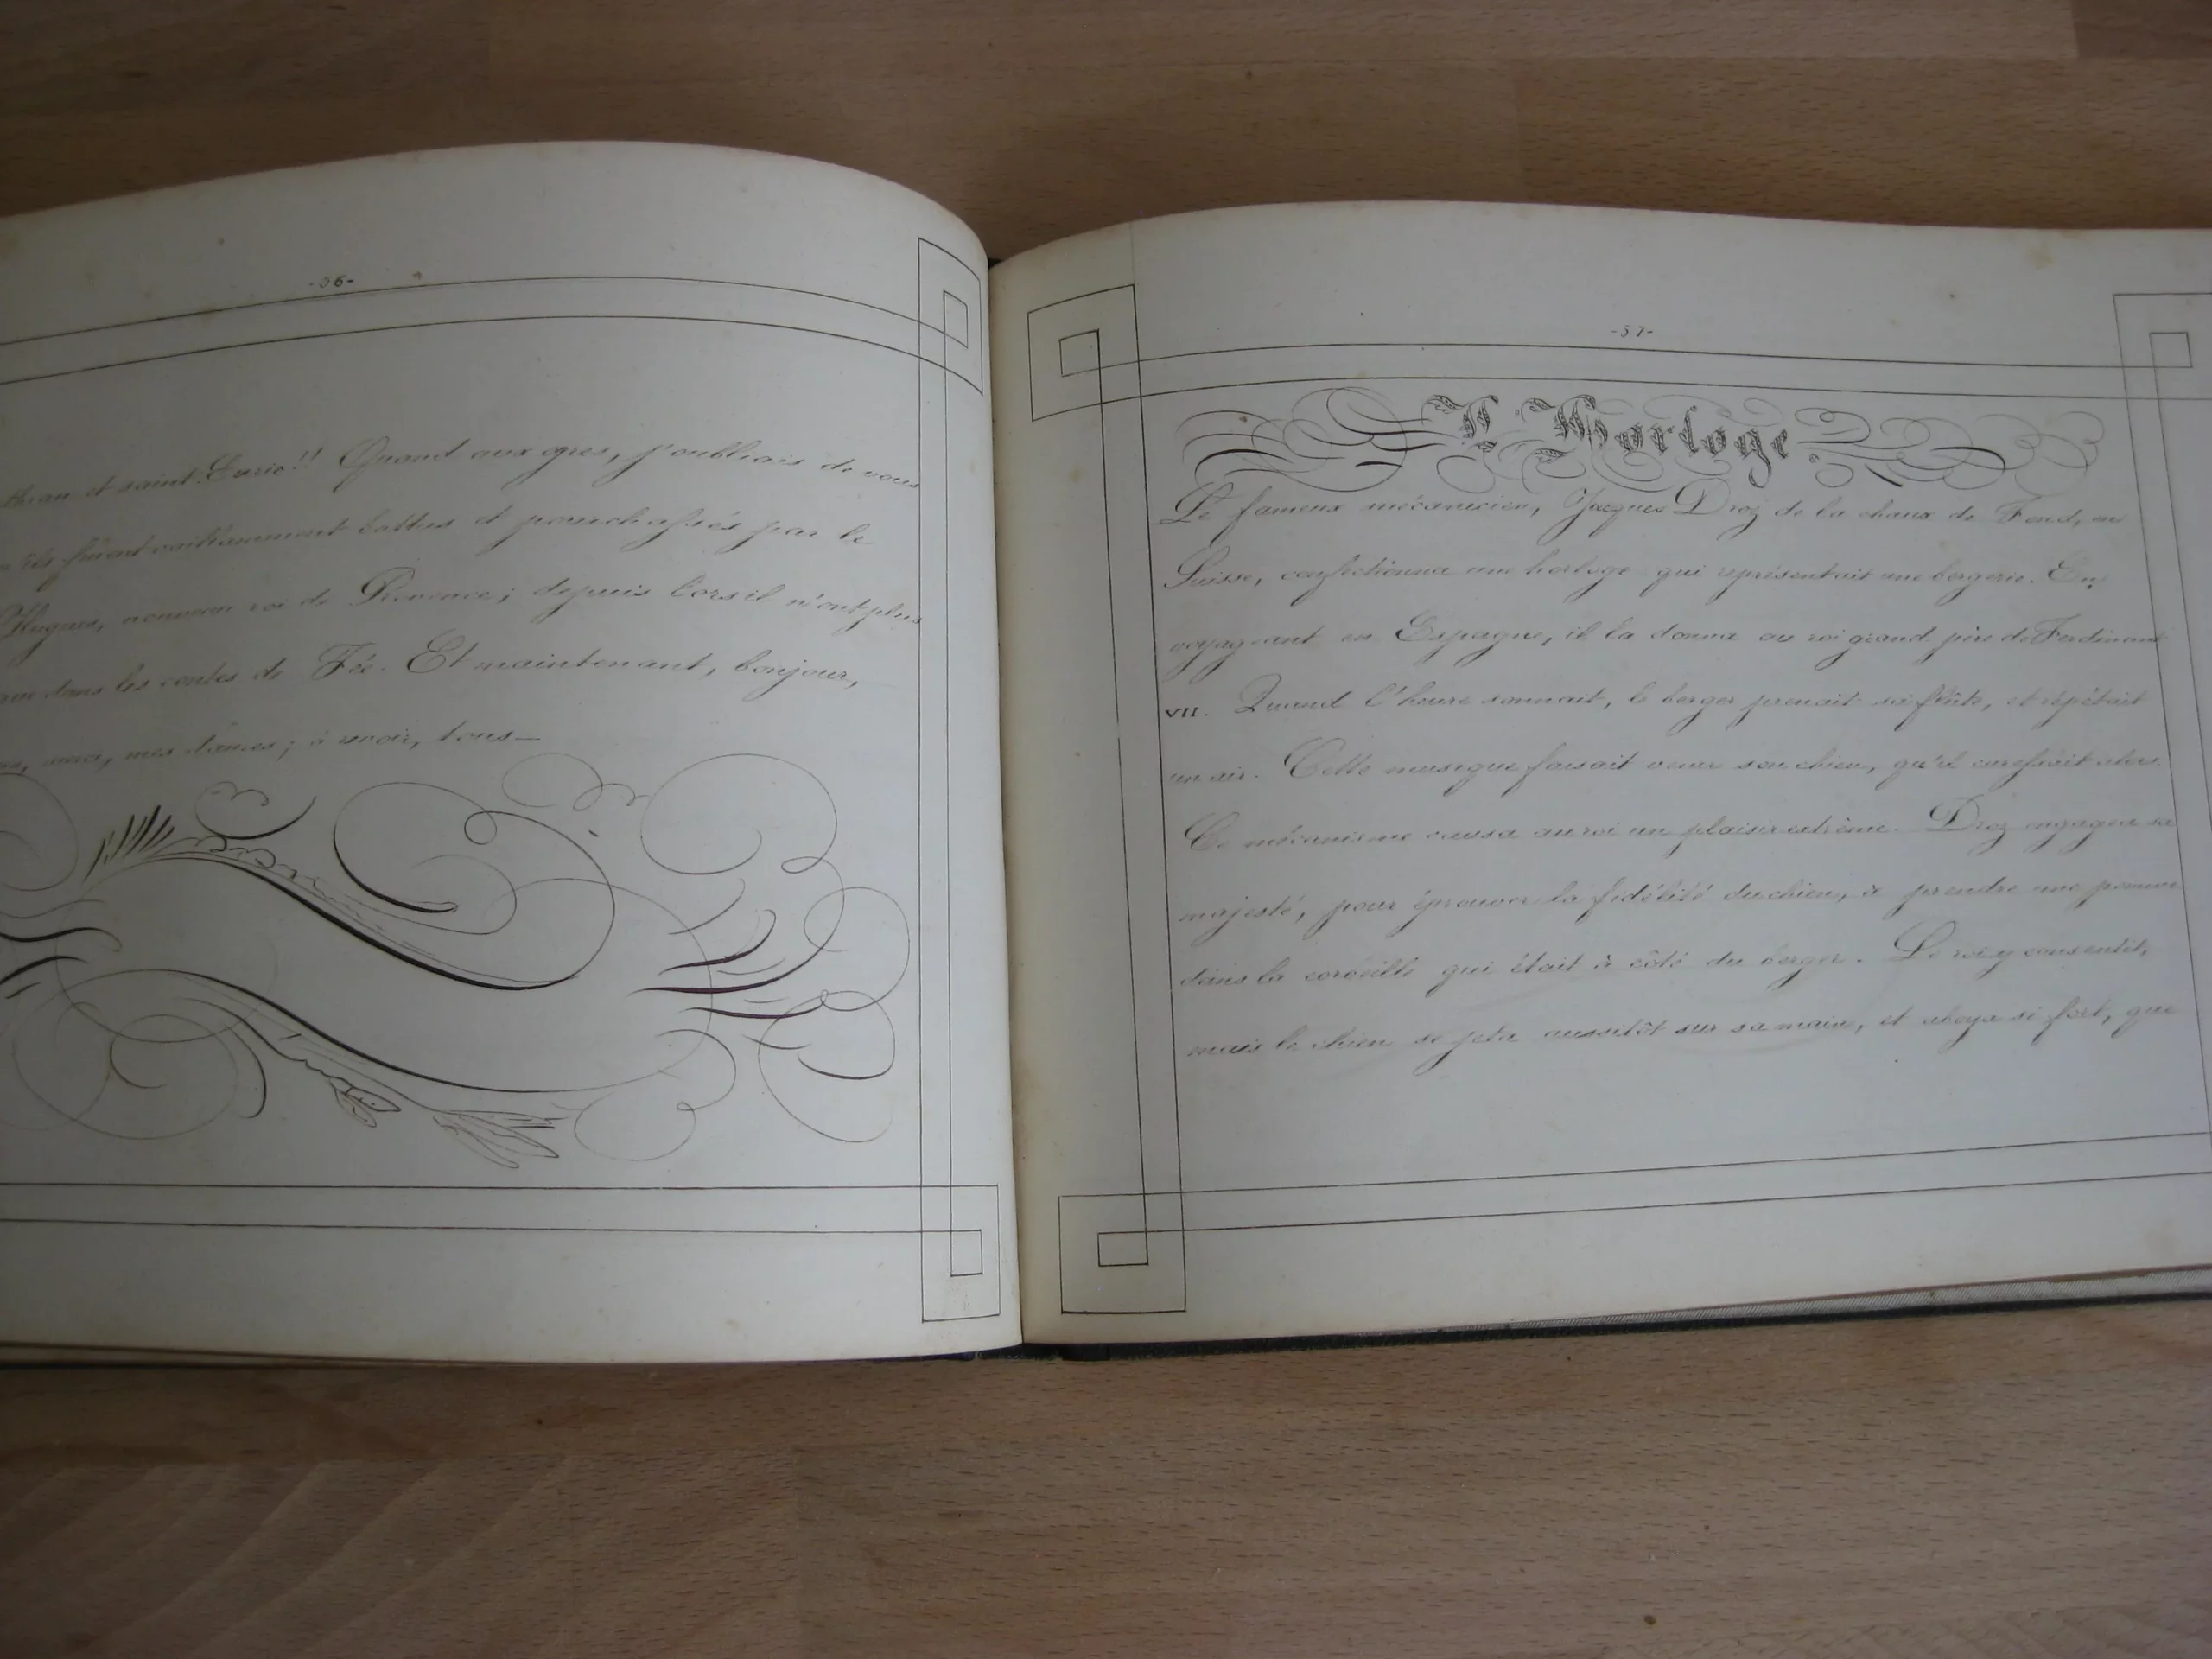 -56-
et saint Eurie!! Quand aux ogres, j'oubliais de vous
ils furent vaillamment battus et pourchassés par le
Hugues, nouveau roi de Provence; depuis lors il n'ont plus
dans les contes de Fée. Et maintenant, bonjour,
merci, mes dames; à revoir, tous—
-57-
L'Horloge
Le fameux mécanicien, Jacques Droz de la chaux de Fond, en
Suisse, confectionna une horloge qui représentait une bergerie. En
voyageant en Espagne, il la donna au roi grand père de Ferdinand
VII. Quand l'heure sonnait, le berger prenait sa flûte, et répétait
un air. Cette musique faisait venir son chien, qu'il caressait alors.
Ce mécanisme causa au roi un plaisir extrème. Droz engagea sa
majesté, pour éprouver la fidélité du chien, à prendre une pomme
dans la corbeille qui était à côté du berger. Le roi y consentit,
mais le chien se jeta aussitôt sur sa main, et aboya si fort, que